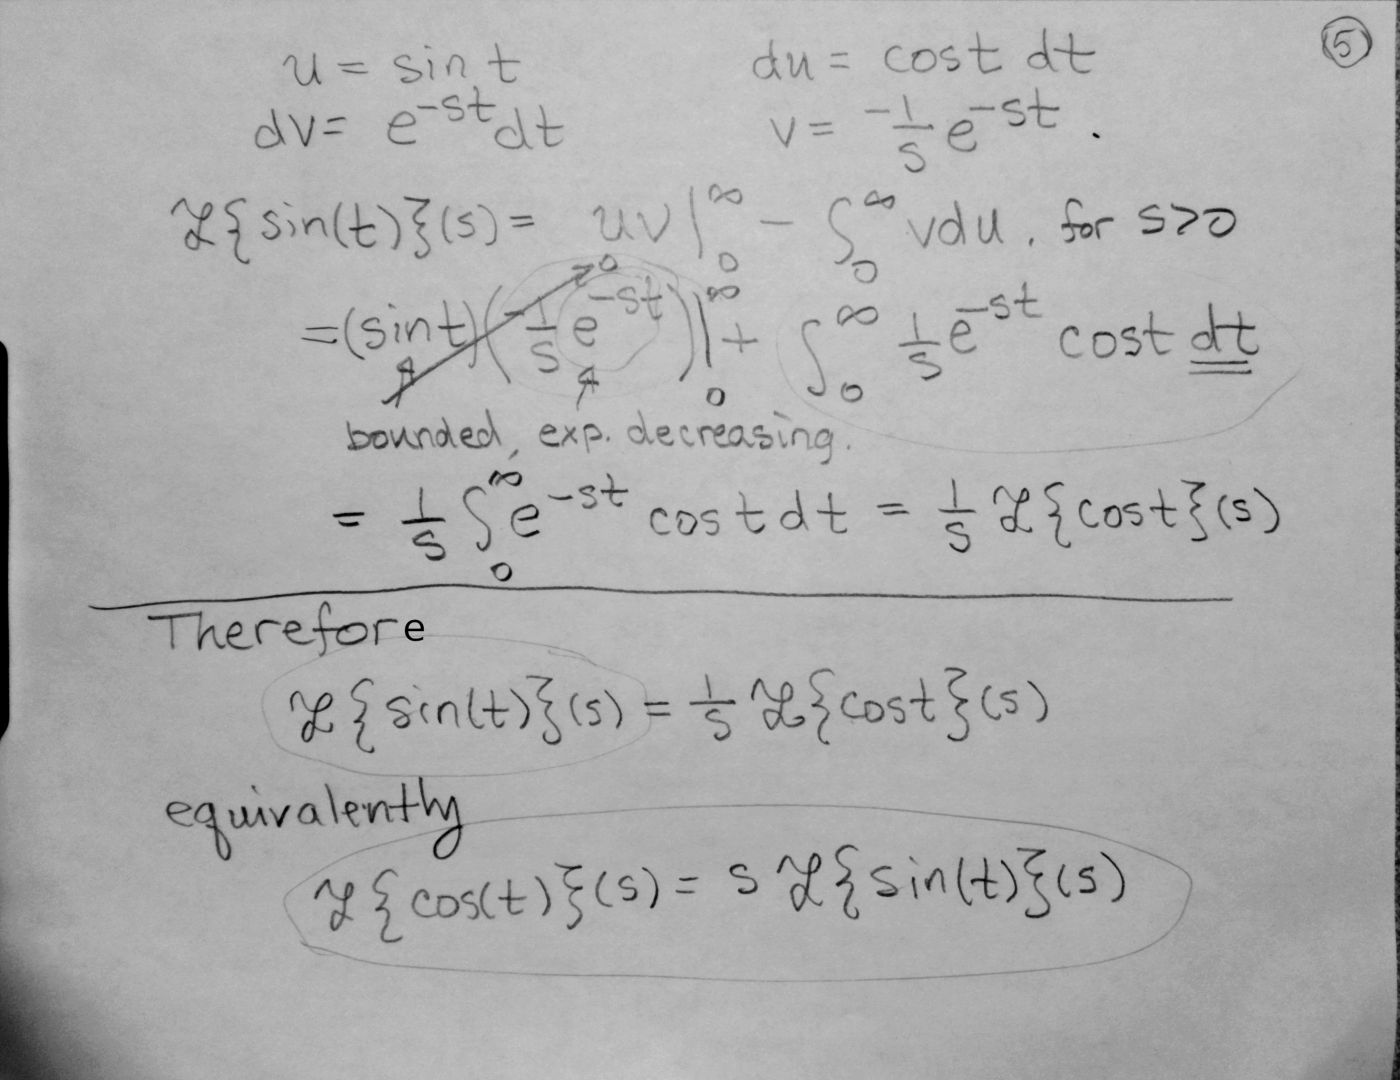 ⑤
u = sin t    du = cos t dt
dv = e^{-st} dt    v = -1/s e^{-st}.
ℒ{sin(t)}(s) = uv|_0^∞ - ∫_0^∞ v du, for s>0
= (sin t)(-1/s e^{-st})|_0^∞ + ∫_0^∞ 1/s e^{-st} cos t dt
0
bounded, exp. decreasing.
= 1/s ∫_0^∞ e^{-st} cos t dt = 1/s ℒ{cos t}(s)
Therefore
ℒ{sin(t)}(s) = 1/s ℒ{cos t}(s)
equivalently
ℒ{cos(t)}(s) = s ℒ{sin(t)}(s)